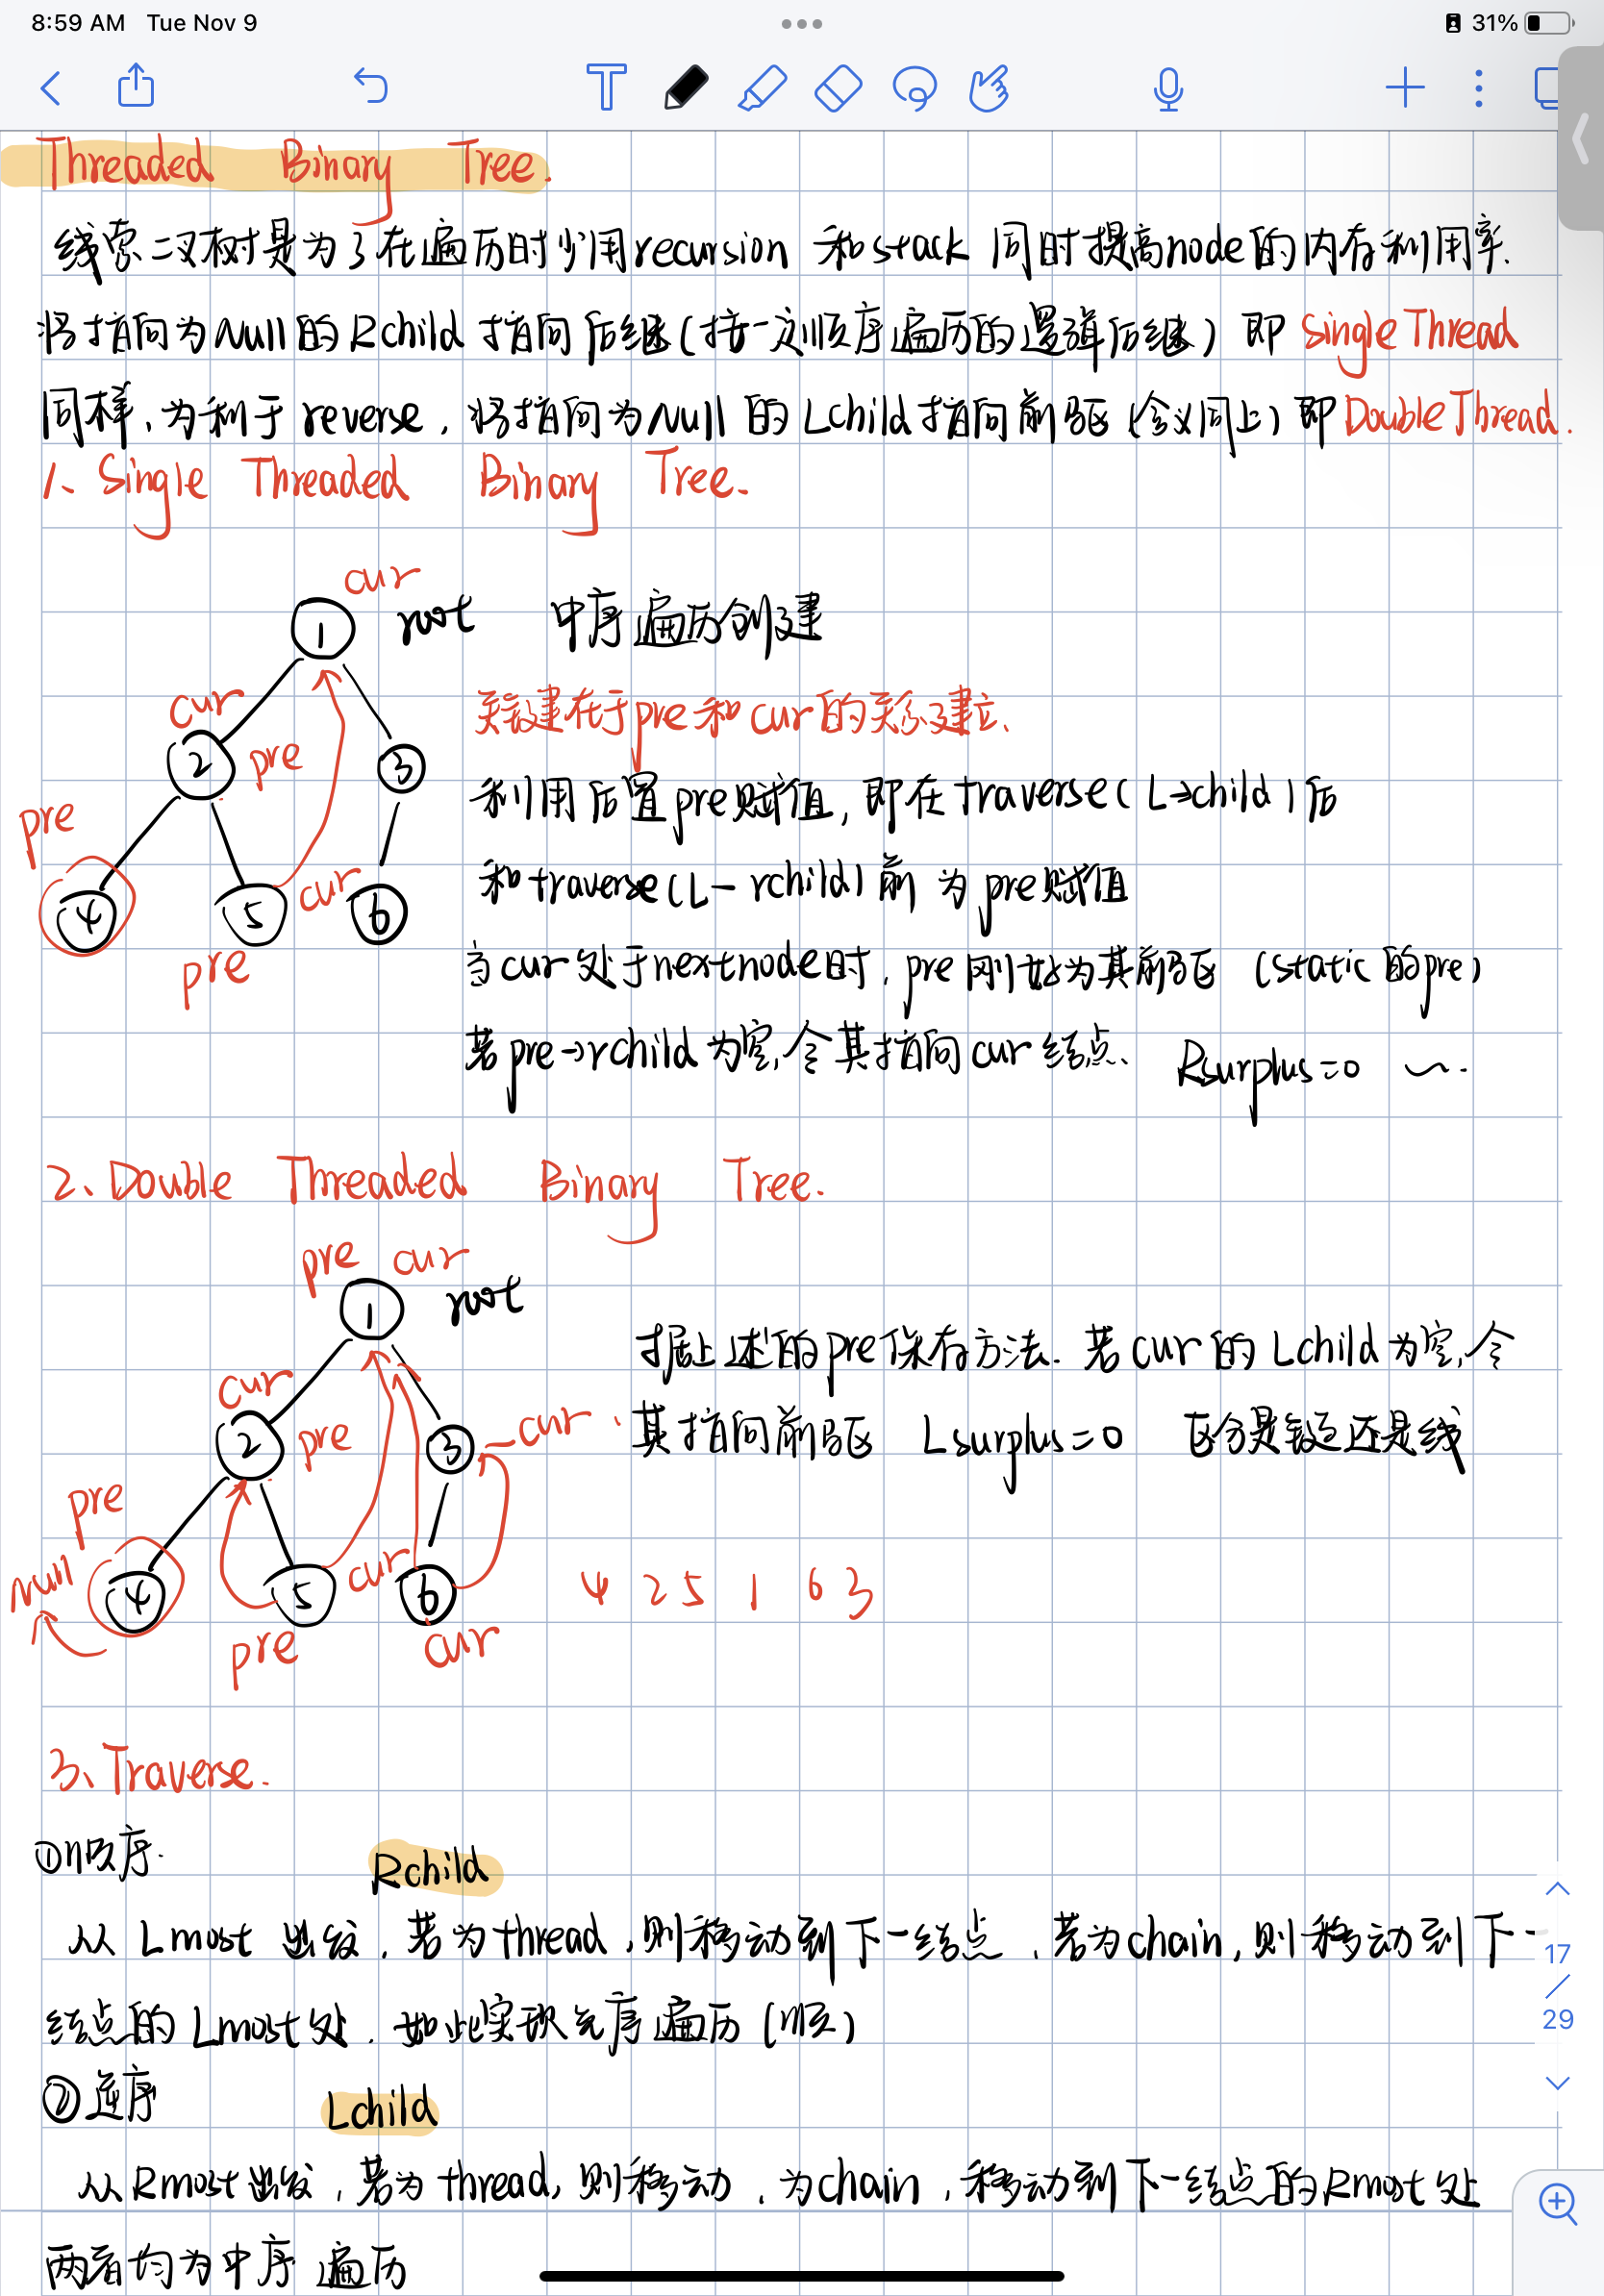 8:59 AM Tue Nov 9
31%
Threaded Binary Tree.
线索二叉树是为了在遍历时少用recursion 和stack 同时提高node的内存利用率.
将指向为Null的Rchild 指向后继(按一定顺序遍历的逻辑后继) 即 Single Thread
同样、为利于reverse, 将指向为Null 的Lchild指向前驱(含义同上) 即DoubleThread.
1、Single Threaded Binary Tree.
cur
1 root 中序遍历创建
cur
关键在于pre和cur的关系建立、
2 pre 3
利用后置pre赋值, 即在traverse(L→child)后
pre
和traverse(L-rchild)前 为pre赋值
4 5 cur 6
pre
当cur处于nextnode时, pre刚好为其前驱 (static的pre)
若pre→rchild为空,令其指向cur结点、 Rsurplus=0 ~.
2、Double Threaded Binary Tree.
pre cur
1 root
据上述的pre保存方法. 若cur的Lchild为空,令
cur
2 pre 3 cur.
其指向前驱 Lsurplus=0 区分是链还是线
pre
null 4 5 cur 6
4 2 5 1 6 3
pre cur
3、Traverse.
①顺序.
Rchild
从Lmost出发, 若为thread,则移动到下一结点, 若为chain,则移动到下一
结点的Lmost处. 如此实现先序遍历(顺)
②逆序
Lchild
从Rmost出发, 若为thread,则移动, 为chain, 移动到下一结点的Rmost处
两者均为中序遍历
17
29